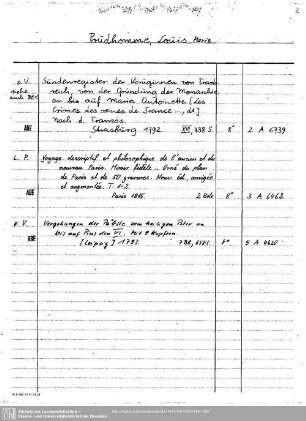 2
Prudhomme, Louis Marie
o. V. Sündenregister der Königinnen von Frank-
siehe reich, von der Gründung der Monarchie
auch an bis auf Maria Antoinette [Les
Crimes des reines de France ..., dt.]
Nach d. Französ.
ABE Strasburg 1792 XVI, 438 S. 8° 2 A 6739
L. P. Voyage descriptif et philosophique de l'ancien et du
nouveau Paris. Miroir fidèle ... Orné du plan
ABE de Paris et de 50 gravures. Nouv. éd., corrigée
et augmentée. T. 1-2.
Paris 1815. 2 Bde 8° 3 A 6462
o. V. Vergehungen der Päbste vom heiligen Peter an
bis auf Pius den VI. Mit 9 Kupfern.
ABE [Leipzig] 1793. 8° 5 A 4620